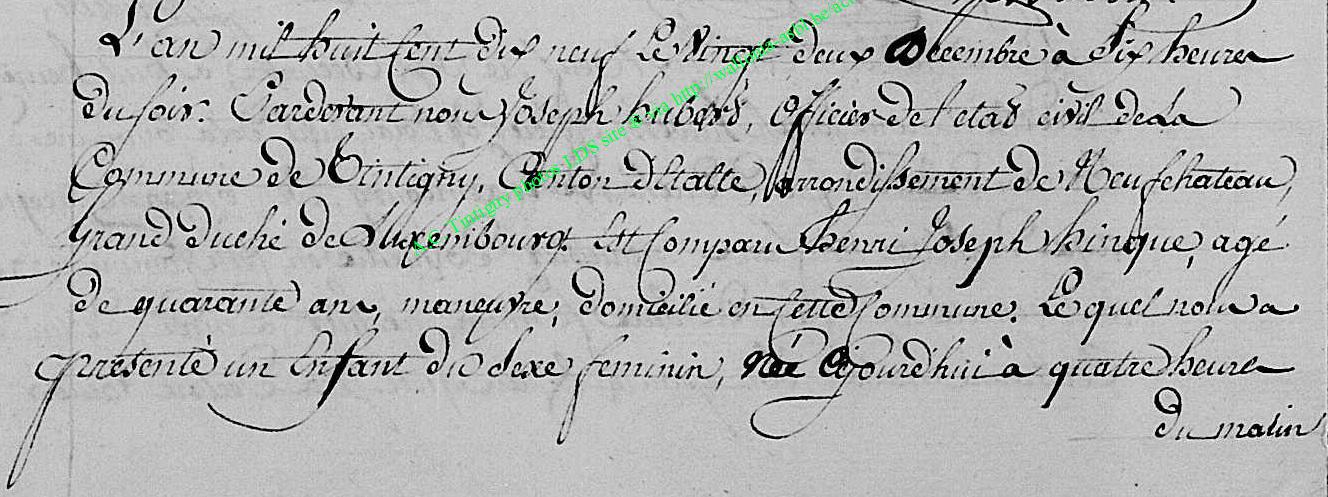 L'an mil huit Cent dix neuf Le Vingt deux Decembre à Six heures
du soir. Pardevant nous Joseph hubert, Officier de l'etat civil de La
Commune de Tintigny, Canton d'Etalle, arrondissement de Neufchateau,
grand duché de Luxembourg. Est Comparu henri Joseph hinque, agé
de quarante ans, manœuvre, domicilié en Cette Commune. Lequel nous a
presenté un Enfant du Sexe feminin, Née Ojourd'hui à quatre heures
du matin
A.C. Tintigny photos LDS site aebl via http://wallonia-aebl.be/ac